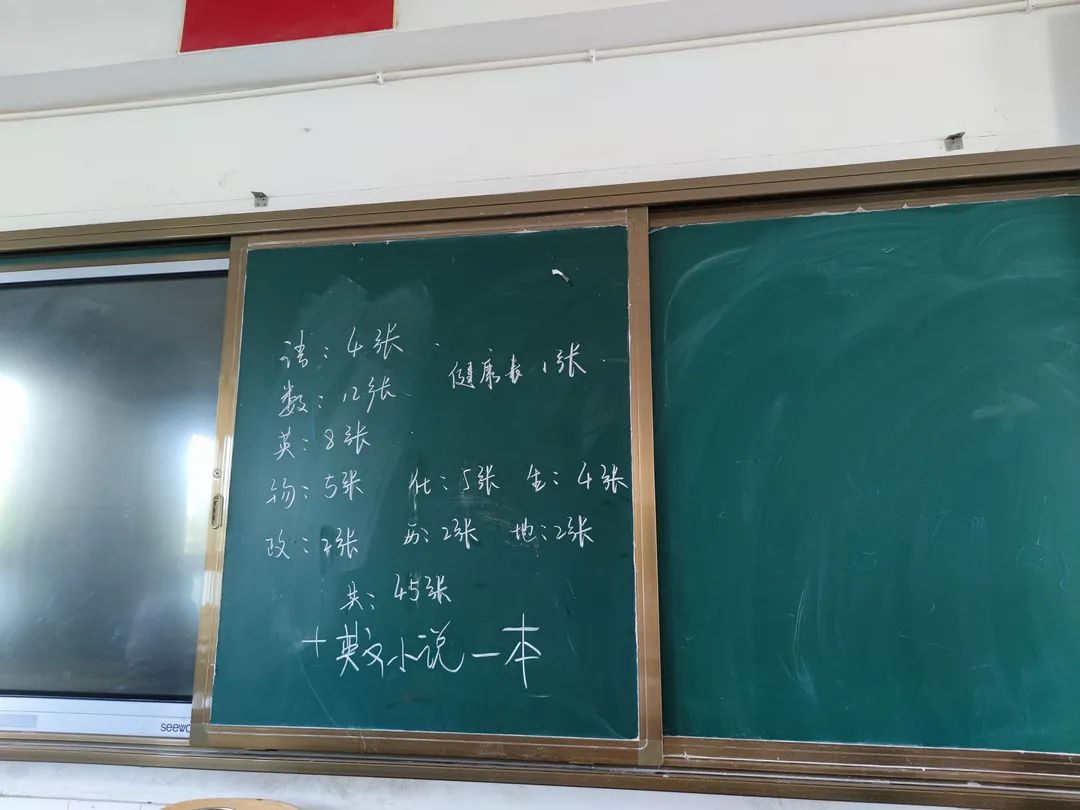 语：4张
健康表1张
数：12张
英：8张
物：5张 化：5张 生：4张
政：2张 历：2张 地：2张
共：45张
+英文小说一本
seewo